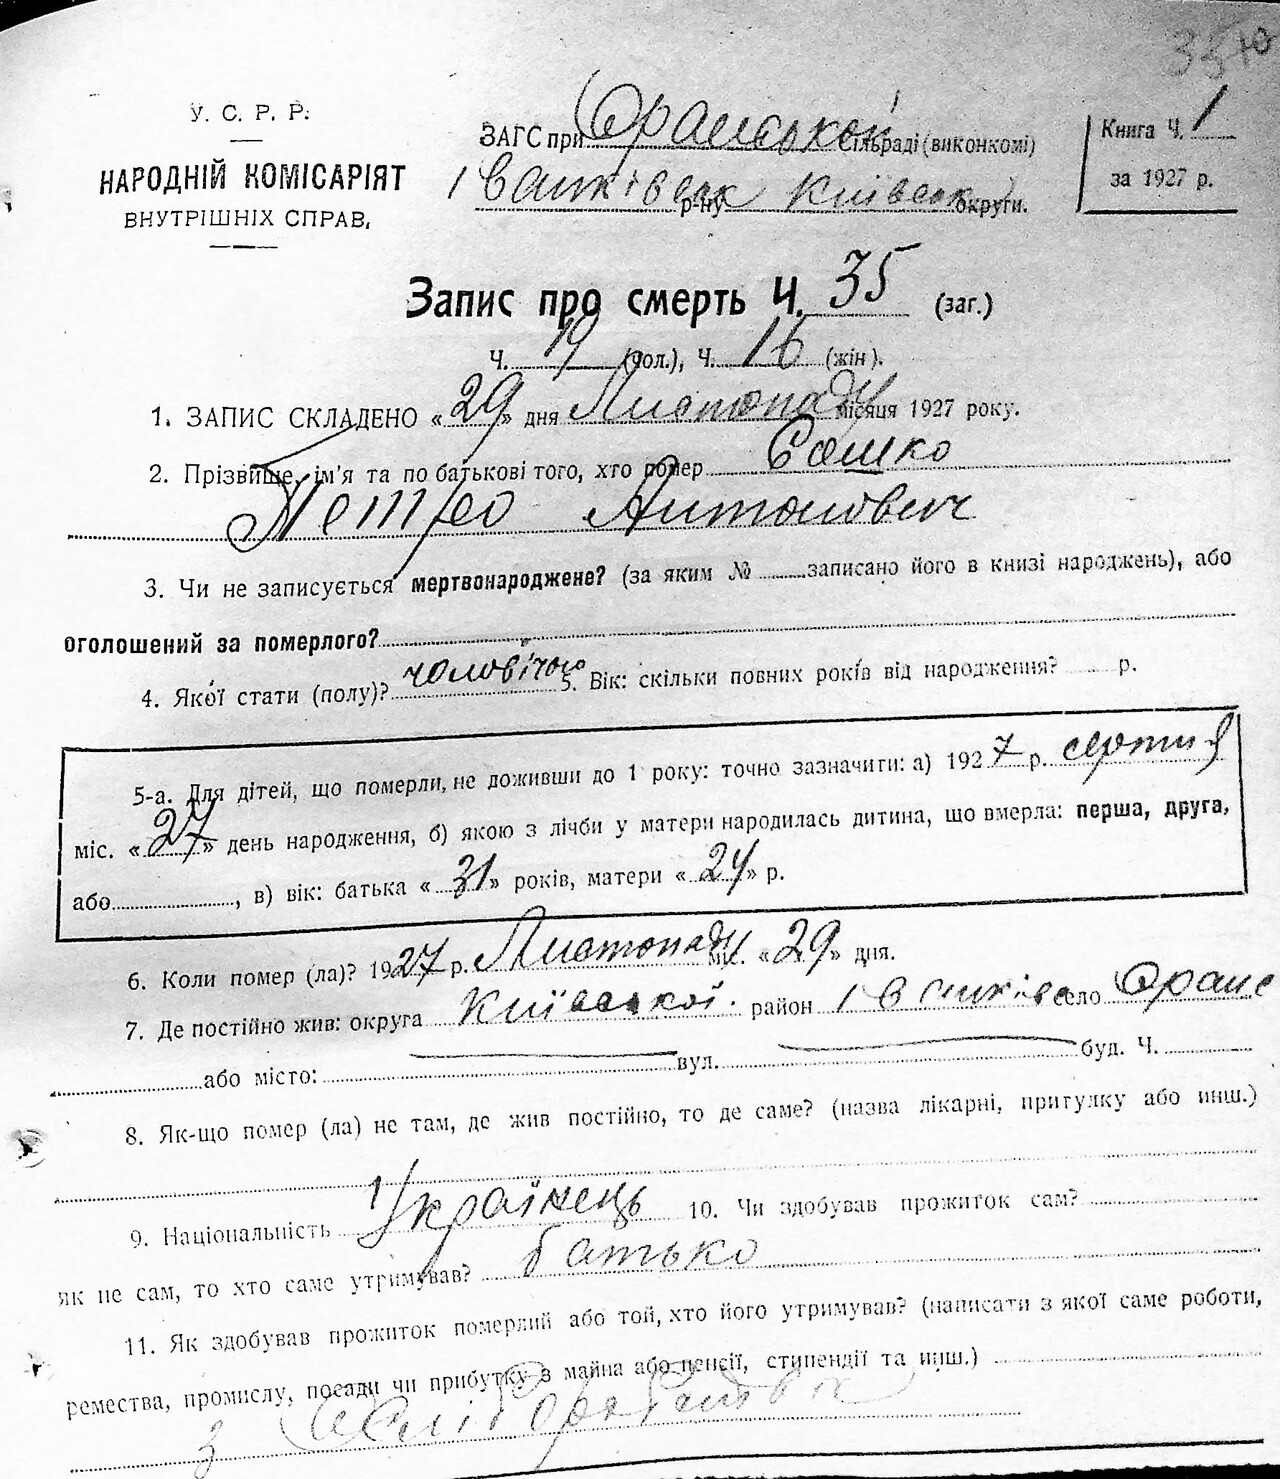 35
У. С. Р. Р.
НАРОДНІЙ КОМІСАРІЯТ
ВНУТРІШНІХ СПРАВ,
ЗАГС при Оранській сільраді (виконкомі)
Іванківськ р-ну Київськ округи.
Книга Ч. 1
за 1927 р.
Запис про смерть Ч. 35 (заг.)
Ч. 19 (чол.), Ч. 16 (жін).
1. ЗАПИС СКЛАДЕНО «29» дня Листопаду місяця 1927 року.
2. Прізвище, ім'я та по батькові того, хто помер Сашко
Петро Антонович
3. Чи не записується мертвонароджене? (за яким № записано його в книзі народжень), або
оголошений за померлого?
4. Якої стати (полу)? чоловічою 5. Вік: скільки повних років від народження? р.
5-а. Для дітей, що померли, не доживши до 1 року: точно зазначити: а) 1927 р. серпня
міс. «27» день народження, б) якою з лічби у матери народилась дитина, що вмерла: перша, друга,
або , в) вік: батька «31» років, матери «24» р.
6. Коли помер (ла)? 1927 р. Листопаду міс. «29» дня.
7. Де постійно жив: округа Київської район Іванків село Оране
або місто: вул. буд. Ч.
8. Як-що помер (ла) не там, де жив постійно, то де саме? (назва лікарні, притулку або инш.)
9. Національність Українець 10. Чи здобував прожиток сам?
як не сам, то хто саме утримував? батько
11. Як здобував прожиток померлий або той, хто його утримував? (написати з якої саме роботи,
ремества, промислу, посади чи прибутку з майна або пенсії, стипендії та инш.)
з